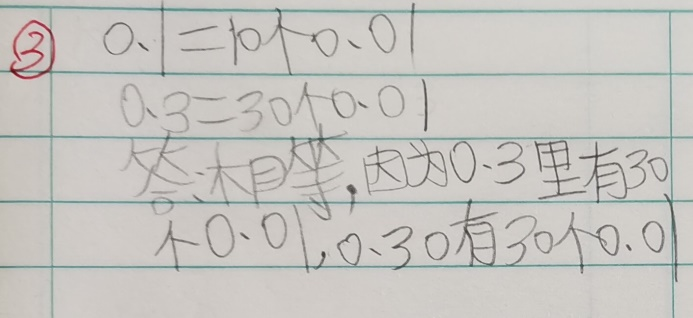 ③ 0.1=10个0.01
0.3=30个0.01
答:相等,因为0.3里有30
个0.01,0.30有30个0.01